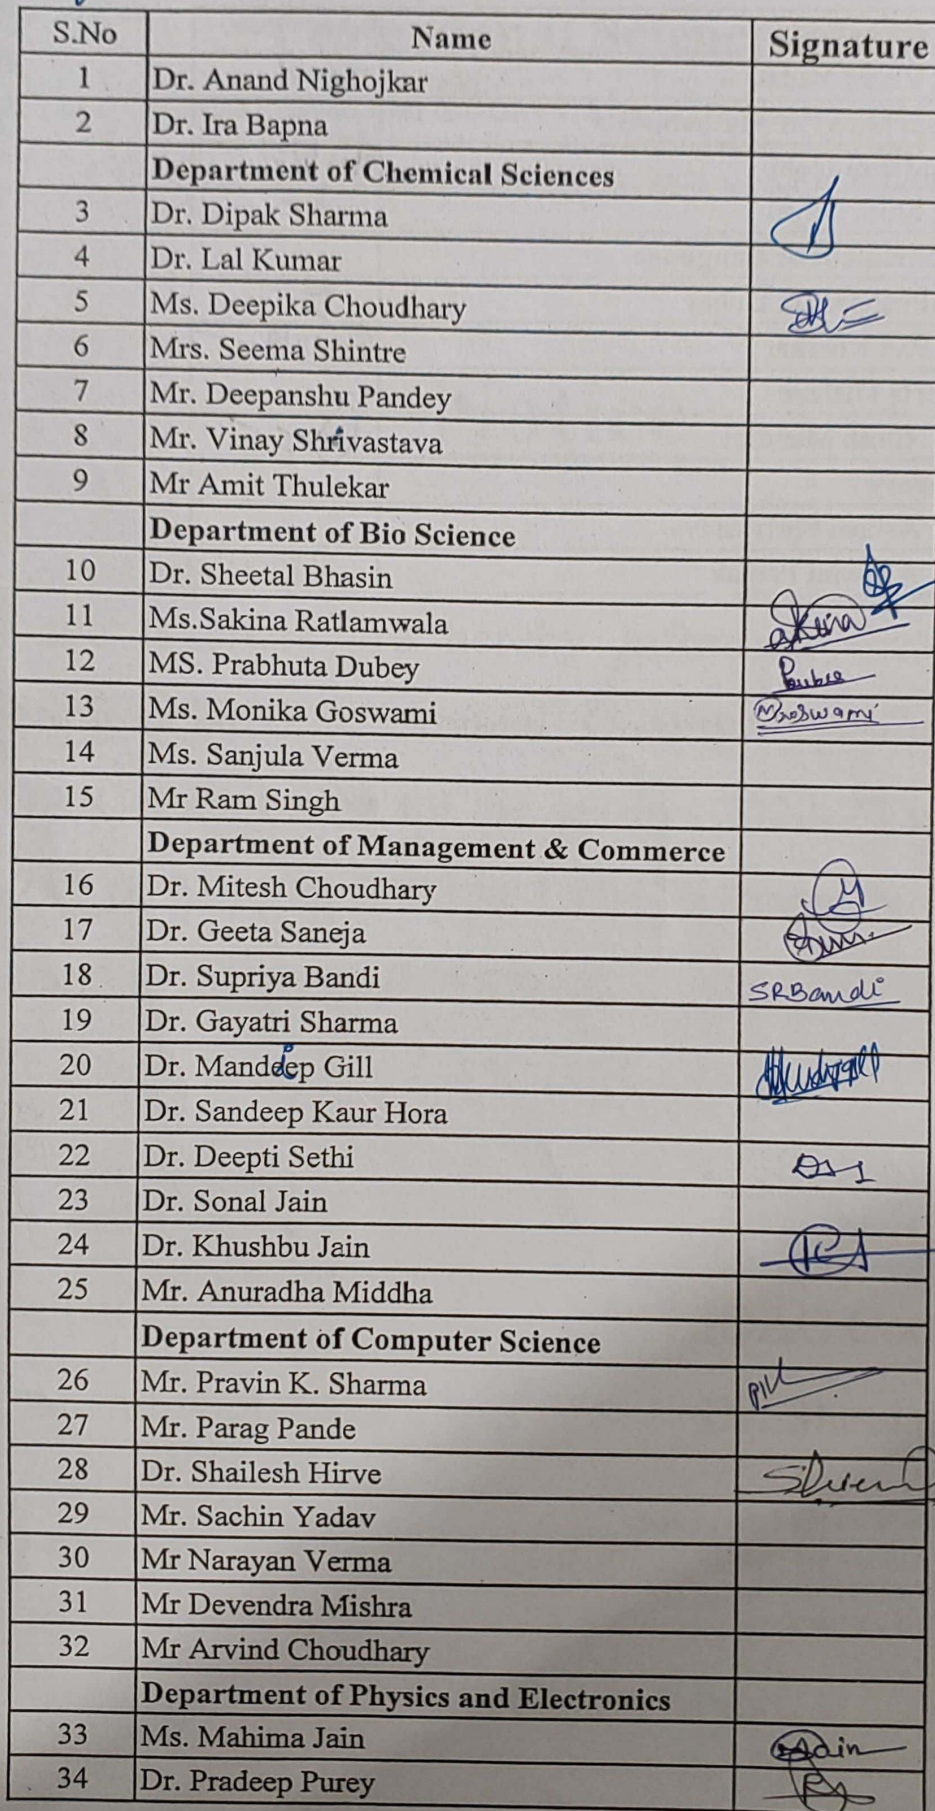 S.No Name Signature
1 Dr. Anand Nighojkar
2 Dr. Ira Bapna
Department of Chemical Sciences
3 Dr. Dipak Sharma
4 Dr. Lal Kumar
5 Ms. Deepika Choudhary
6 Mrs. Seema Shintre
7 Mr. Deepanshu Pandey
8 Mr. Vinay Shrivastava
9 Mr Amit Thulekar
Department of Bio Science
10 Dr. Sheetal Bhasin
11 Ms.Sakina Ratlamwala
12 MS. Prabhuta Dubey
13 Ms. Monika Goswami
14 Ms. Sanjula Verma
15 Mr Ram Singh
Department of Management & Commerce
16 Dr. Mitesh Choudhary
17 Dr. Geeta Saneja
18 Dr. Supriya Bandi SRBandi
19 Dr. Gayatri Sharma
20 Dr. Manddep Gill
21 Dr. Sandeep Kaur Hora
22 Dr. Deepti Sethi
23 Dr. Sonal Jain
24 Dr. Khushbu Jain
25 Mr. Anuradha Middha
Department of Computer Science
26 Mr. Pravin K. Sharma
27 Mr. Parag Pande
28 Dr. Shailesh Hirve
29 Mr. Sachin Yadav
30 Mr Narayan Verma
31 Mr Devendra Mishra
32 Mr Arvind Choudhary
Department of Physics and Electronics
33 Ms. Mahima Jain
34 Dr. Pradeep Purey